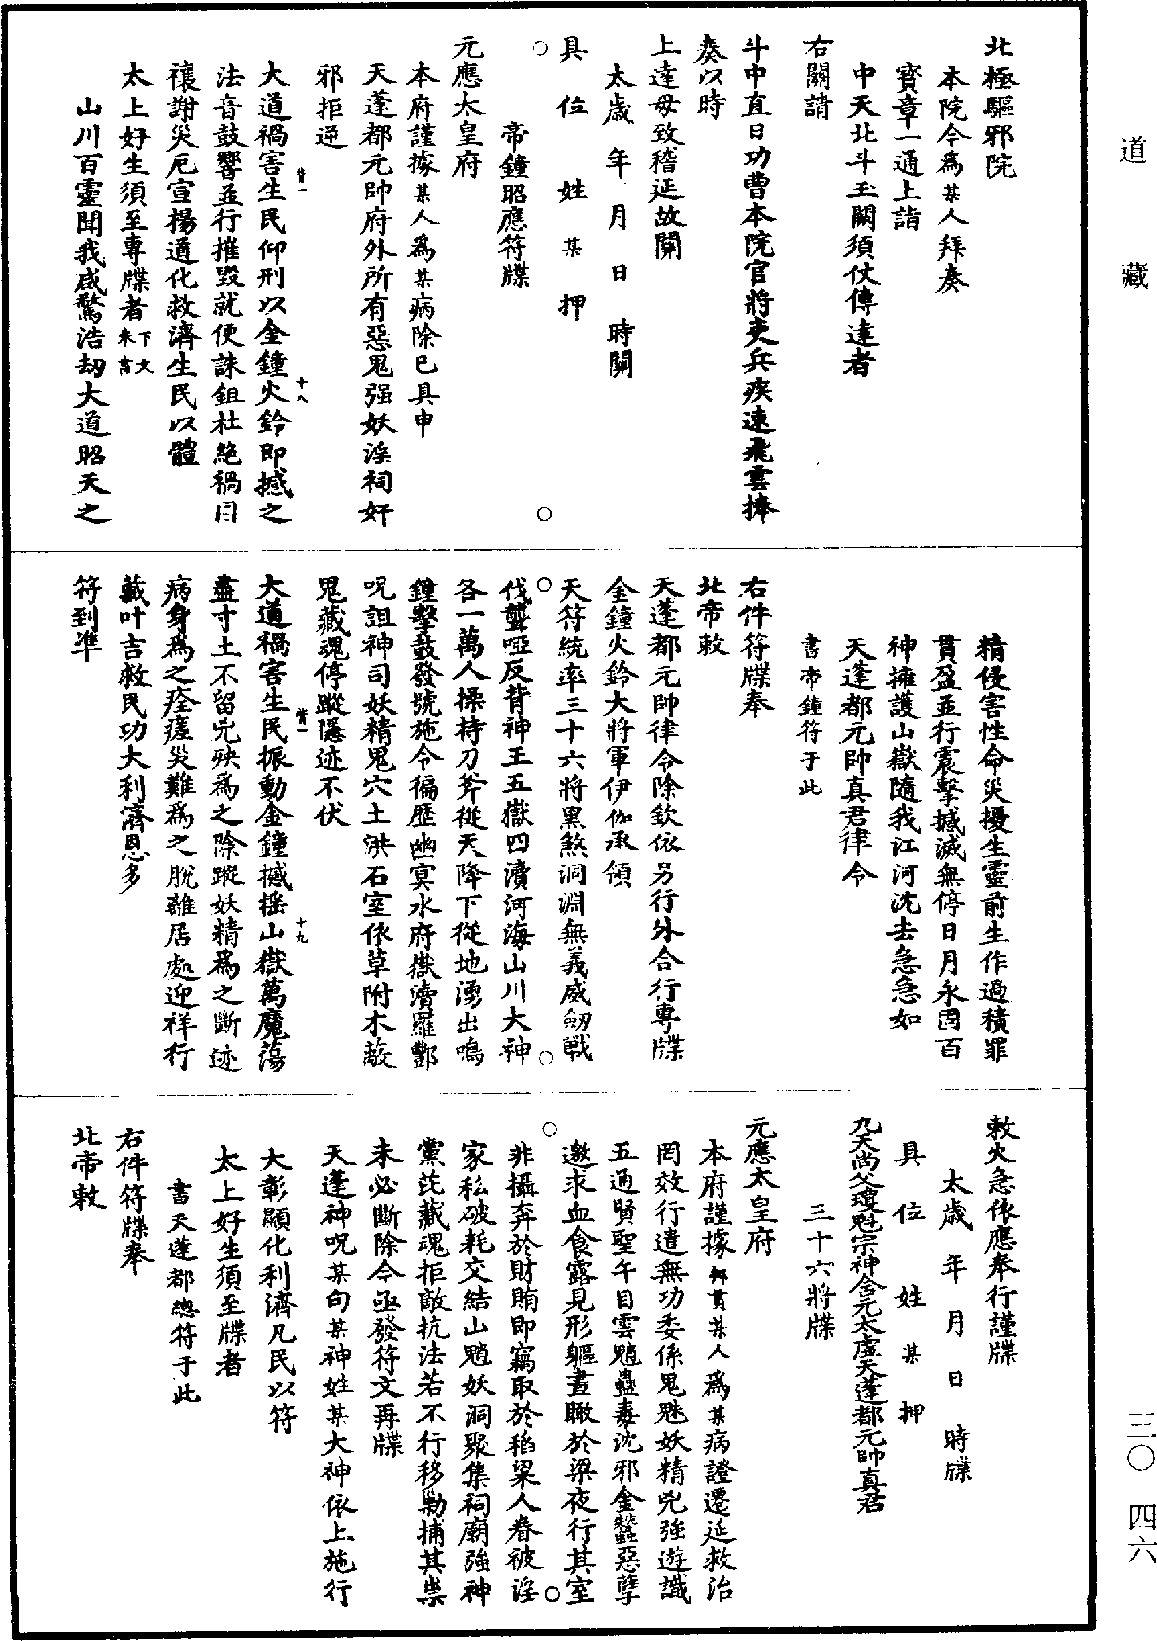 道藏
三〇 四六
北極驅邪院
本院今爲某人拜奏
寳章一通上詣
中天北斗玉闕須仗傳達者
右關請
斗中直日功曹本院官將吏兵疾速飛雲捧
奏以時
上達毋致稽延故關
太歲 年 月 日 時關
具 位 姓 某 押
帝鐘昭應符牒
元應太皇府
本府謹據某人爲某病除已具申
天蓬都元帥府外所有惡鬼强妖滛祠奸
邪拒逆
大道禍害生民仰刑以金鐘火鈴即撼之
法音鼓響並行摧毀就便誅鉏杜絶禍目
禳謝災厄宣揚道化救濟生民以體
太上好生須至專牒者下文未書
山川百靈聞我咸驚浩刼大道昭天之
背一
十八
精侵害性命災擾生靈前生作過積罪
貫盈並行震擊撼滅無停日月永固百
神擁護山嶽隨我江河沈去急急如
天蓬都元帥真君律令
書帝鍾符于此
右件符牒奉
北帝敕
天蓬都元帥律令除欽依另行外合行專牒
金鐘火鈴大將軍伊伽承領
天符統率三十六將黑煞洞淵無義威劒戰
伐聾啞反背神王五嶽四瀆河海山川大神
各一萬人操持刀斧從天降下從地湧出鳴
鐘擊鼓發號施令徧歷幽冥水府嶽瀆羅酆
呪詛神司妖精鬼穴土洪石室依草附木敵
鬼藏魂停蹤隱迹不伏
大道禍害生民振動金鐘撼摇山嶽萬魔蕩
盡寸土不留兇殃爲之除蹤妖精爲之斷迹
病身爲之痊瘥災難爲之脱離居處迎祥行
藏叶吉救民功大利濟恩多
符到準
背一
十九
敕火急依應奉行謹牒
太歲 年 月 日 時牒
具 位 姓 某 押
九天尚父瓊魁宗神含元太虛天蓬都元帥真君
三十六將牒
元應太皇府
本府謹據鄉貫某人爲某病證遷延救治
罔效行遣無功委係鬼魅妖精兇强遊識
五通賢聖午目雲魈蠱毒沈邪金蠶惡孽
邀求血食露見形軀晝瞰於梁夜行其室
非攝奔於財賄即竊取於稻粱人眷被滛
家私破耗交結山魈妖洞聚集祠廟强神
黨庇藏魂拒敵抗法若不行移勦捕其祟
未必斷除今亟發符文再牒
天蓬神呪某句某神姓某大神依上施行
大彰顯化利濟凡民以符
太上好生須至牒者
書天蓬都總符于此
右件符牒奉
北帝敕